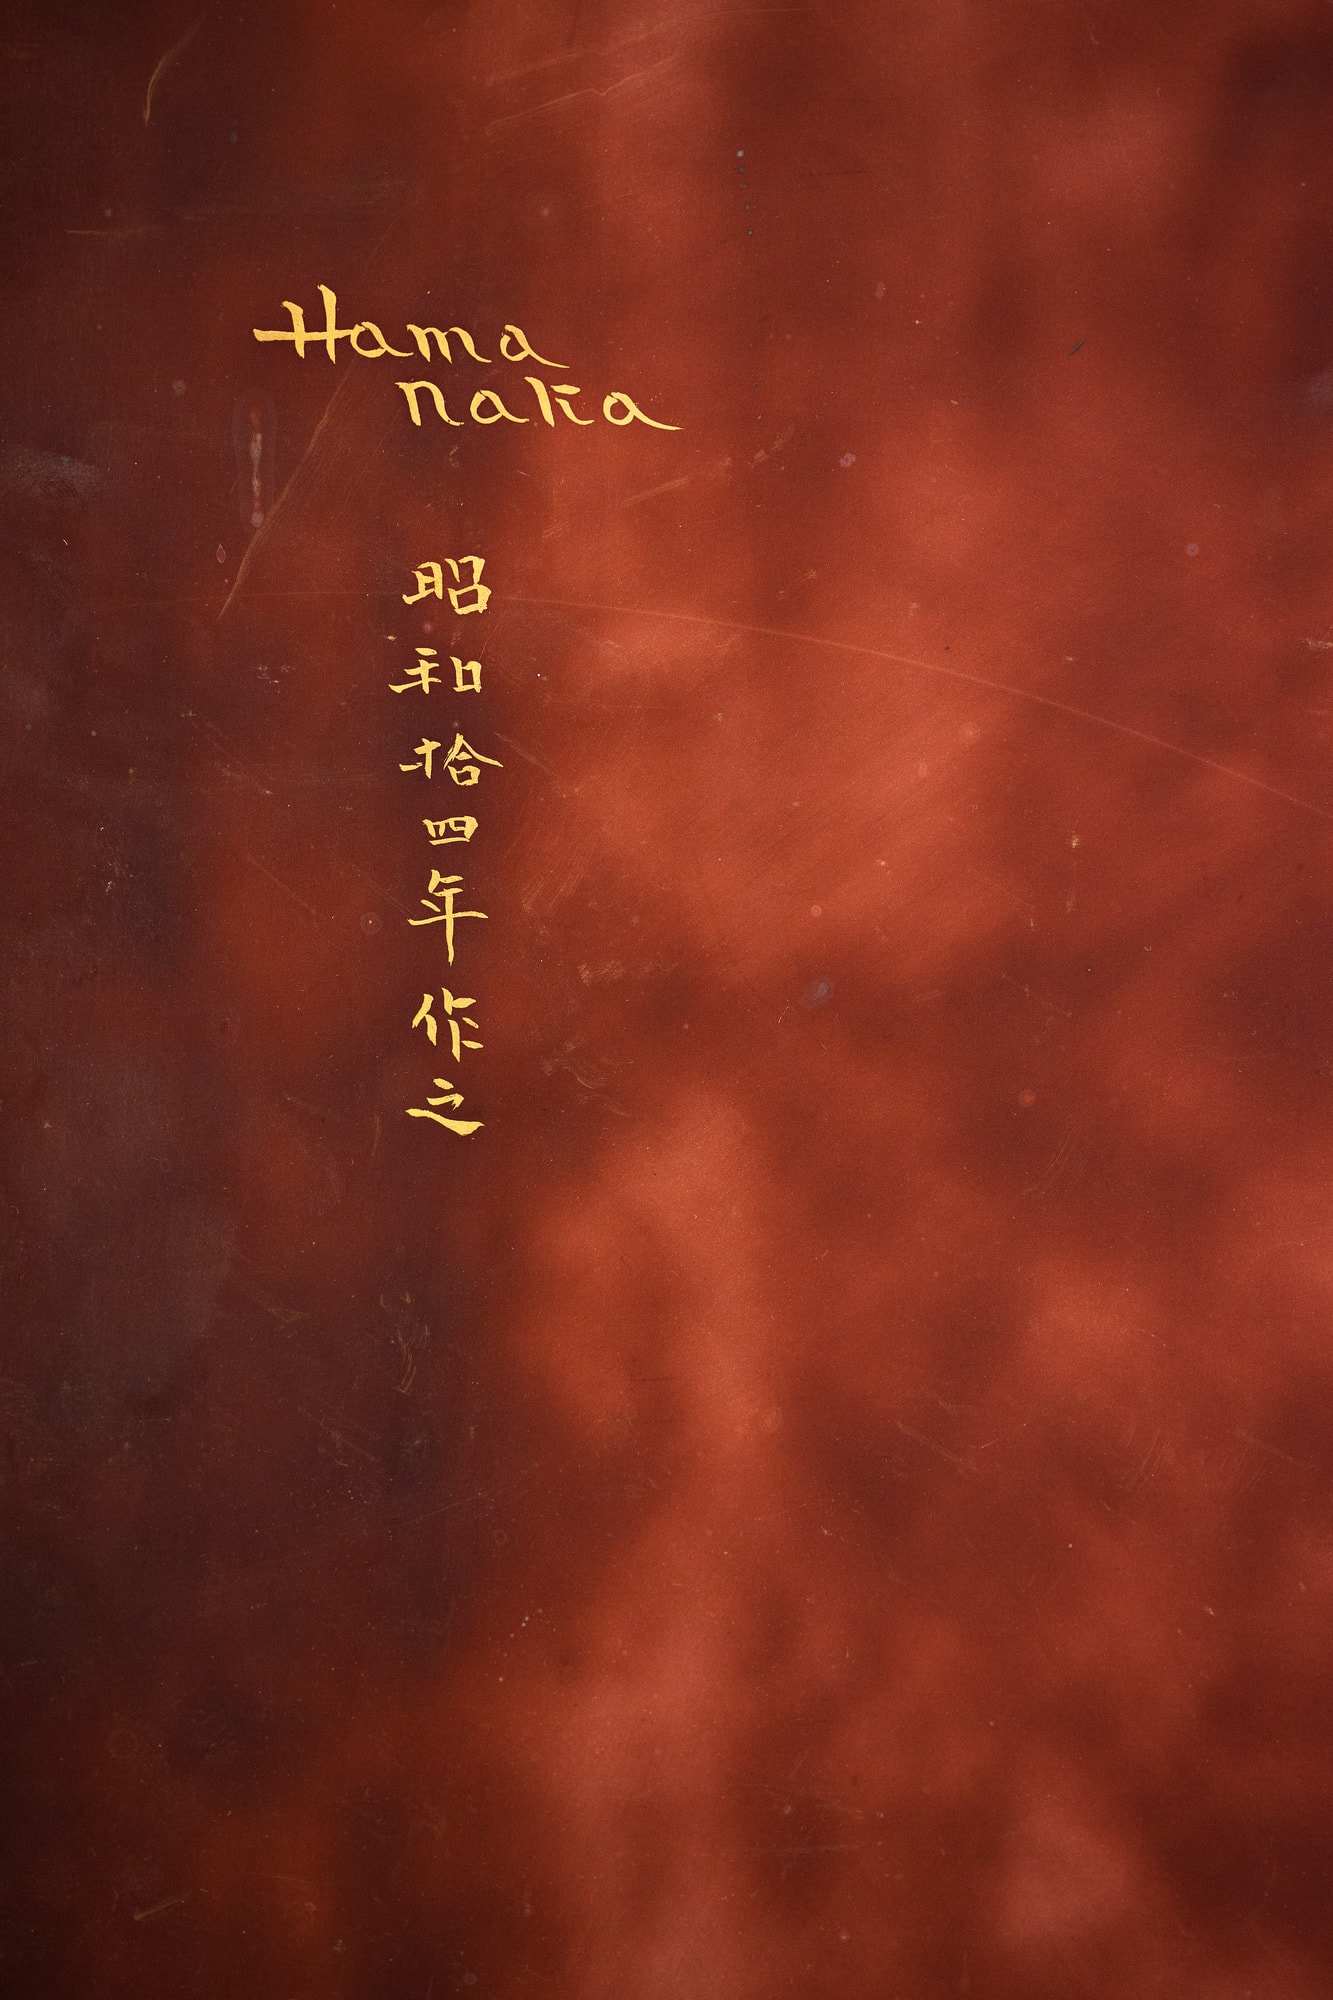 Hama
naka
昭和拾四年作之